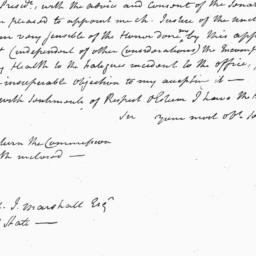 Presid^t, with the advice and consent of the Senate
pleased to appoint me ch. Justice of the
very sensible of the Honor done me by this app
(independent of other Considerations) the Incomp
Health to the fatigues incident to the office,
insuperable objection to my accepting it —
with Sentiments of Respect & Esteem I have the
Sir your most ob^t S
the Commission
inclosed —
J. Marshall Esq^r
State —